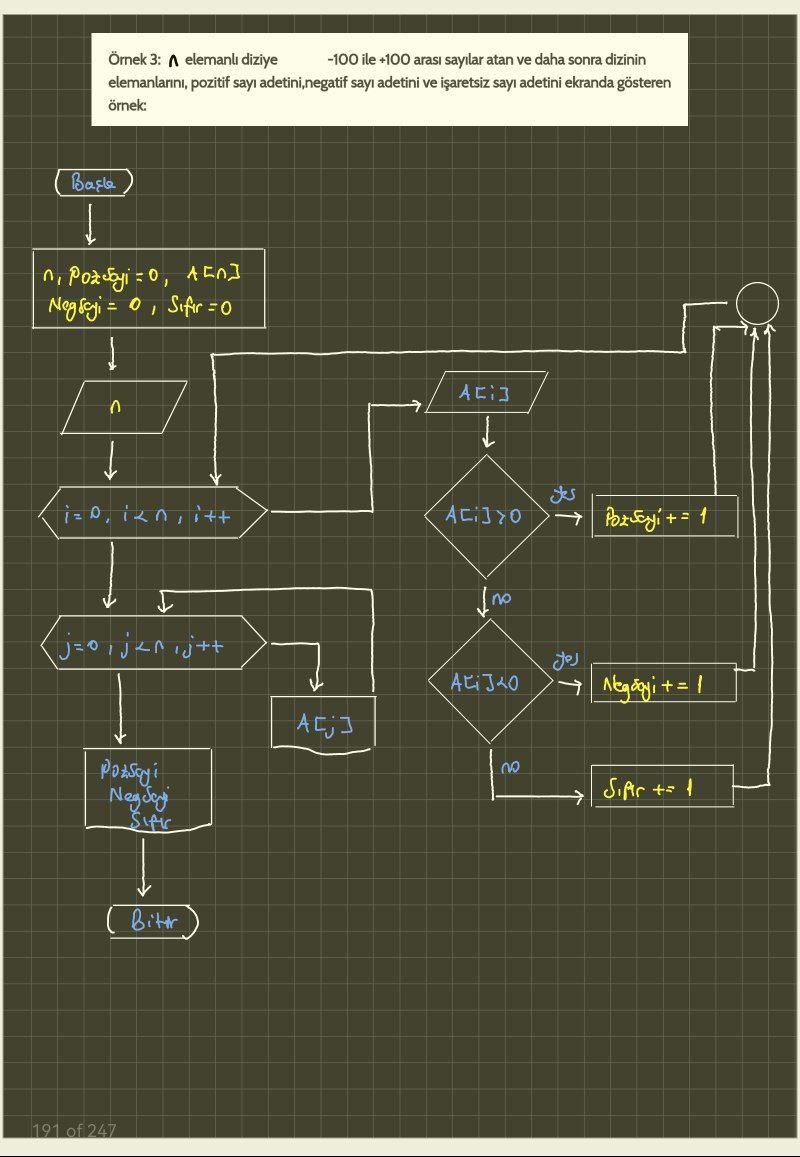 Örnek 3: n elemanlı diziye -100 ile +100 arası sayılar atan ve daha sonra dizinin
elemanlarını, pozitif sayı adetini,negatif sayı adetini ve işaretsiz sayı adetini ekranda gösteren
örnek:
Başla
n, PozSayi = 0, A[n]
NegSayi = 0, Sıfır = 0
n
A[i]
i=0, i<n, i++
A[i]>0
yes
PozSayi += 1
no
j=0, j<n, j++
A[i]<0
yes
NegSayi += 1
A[j]
no
PozSayi
NegSayi
Sıfır
Sıfır += 1
Bitir
191 of 247